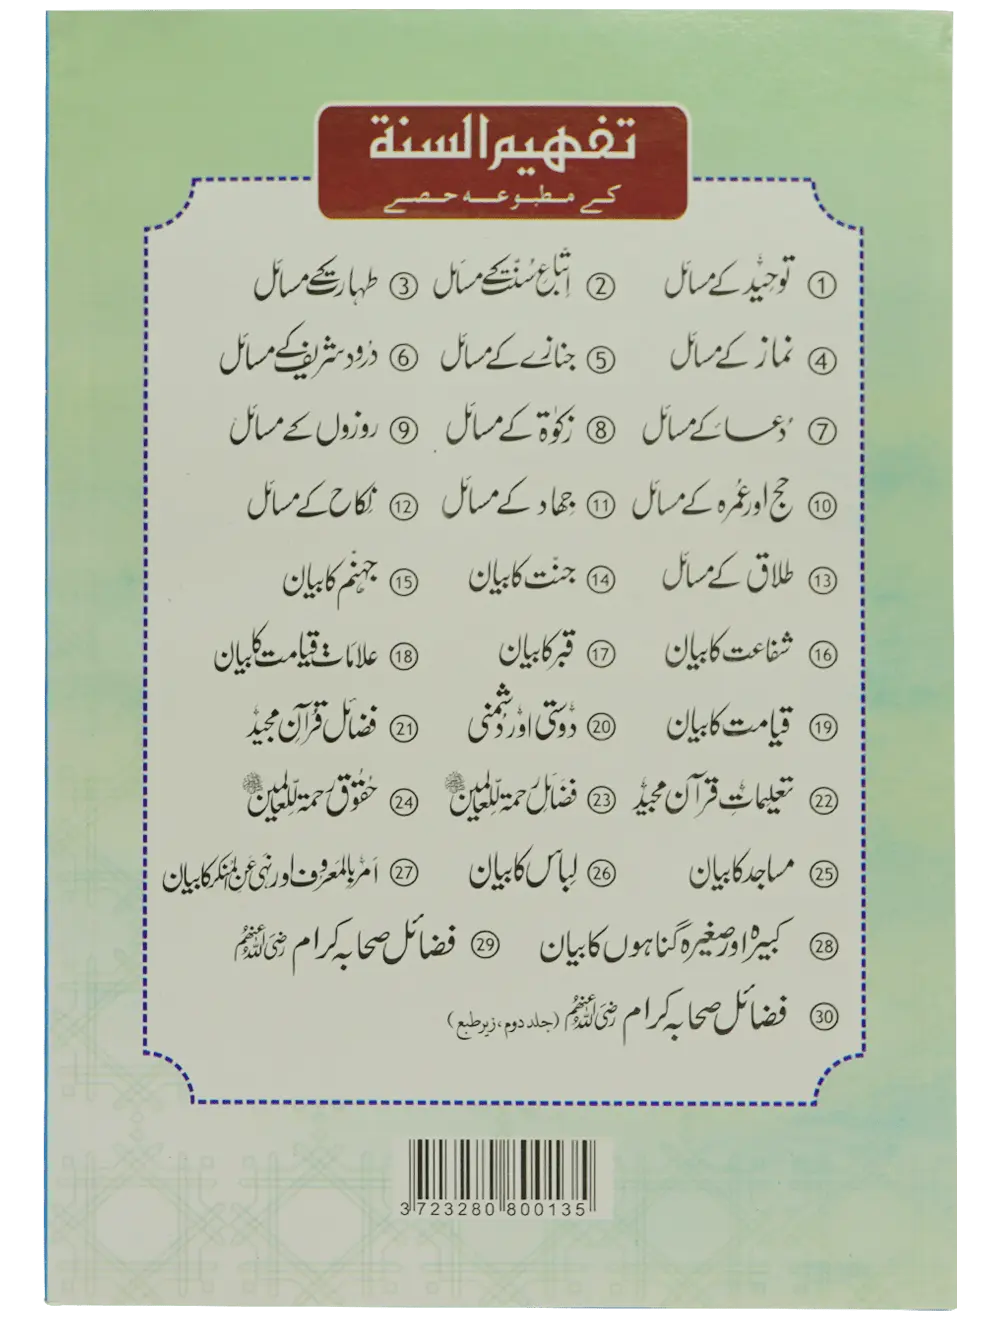 تفہیم السنۃ
کے مطبوعہ حصے
① توحید کے مسائل ② اتباعِ سُنّت کے مسائل ③ طہارت کے مسائل
④ نماز کے مسائل ⑤ جنازے کے مسائل ⑥ درود شریف کے مسائل
⑦ دُعا کے مسائل ⑧ زکوٰۃ کے مسائل ⑨ روزوں کے مسائل
⑩ حج اور عُمرہ کے مسائل ⑪ جہاد کے مسائل ⑫ نکاح کے مسائل
⑬ طلاق کے مسائل ⑭ جنّت کا بیان ⑮ جہنّم کا بیان
⑯ شفاعت کا بیان ⑰ قبر کا بیان ⑱ علاماتِ قیامت کا بیان
⑲ قیامت کا بیان ⑳ دوستی اور دُشمنی ㉑ فضائل قُرآنِ مجید
㉒ تعلیماتِ قرآن مجید ㉓ فضائل رحمۃ لّلعالمین ﷺ ㉔ حُقوق رحمۃ لّلعالمین ﷺ
㉕ مساجد کا بیان ㉖ لباس کا بیان ㉗ امر بالمعروف اور نہی عن المنکر کا بیان
㉘ کبیرہ اور صغیرہ گناہوں کا بیان ㉙ فضائل صحابہ کرام رضی اللہ عنہم
㉚ فضائل صحابہ کرام رضی اللہ عنہم (جلد دوم، زیر طبع)
3723280800135